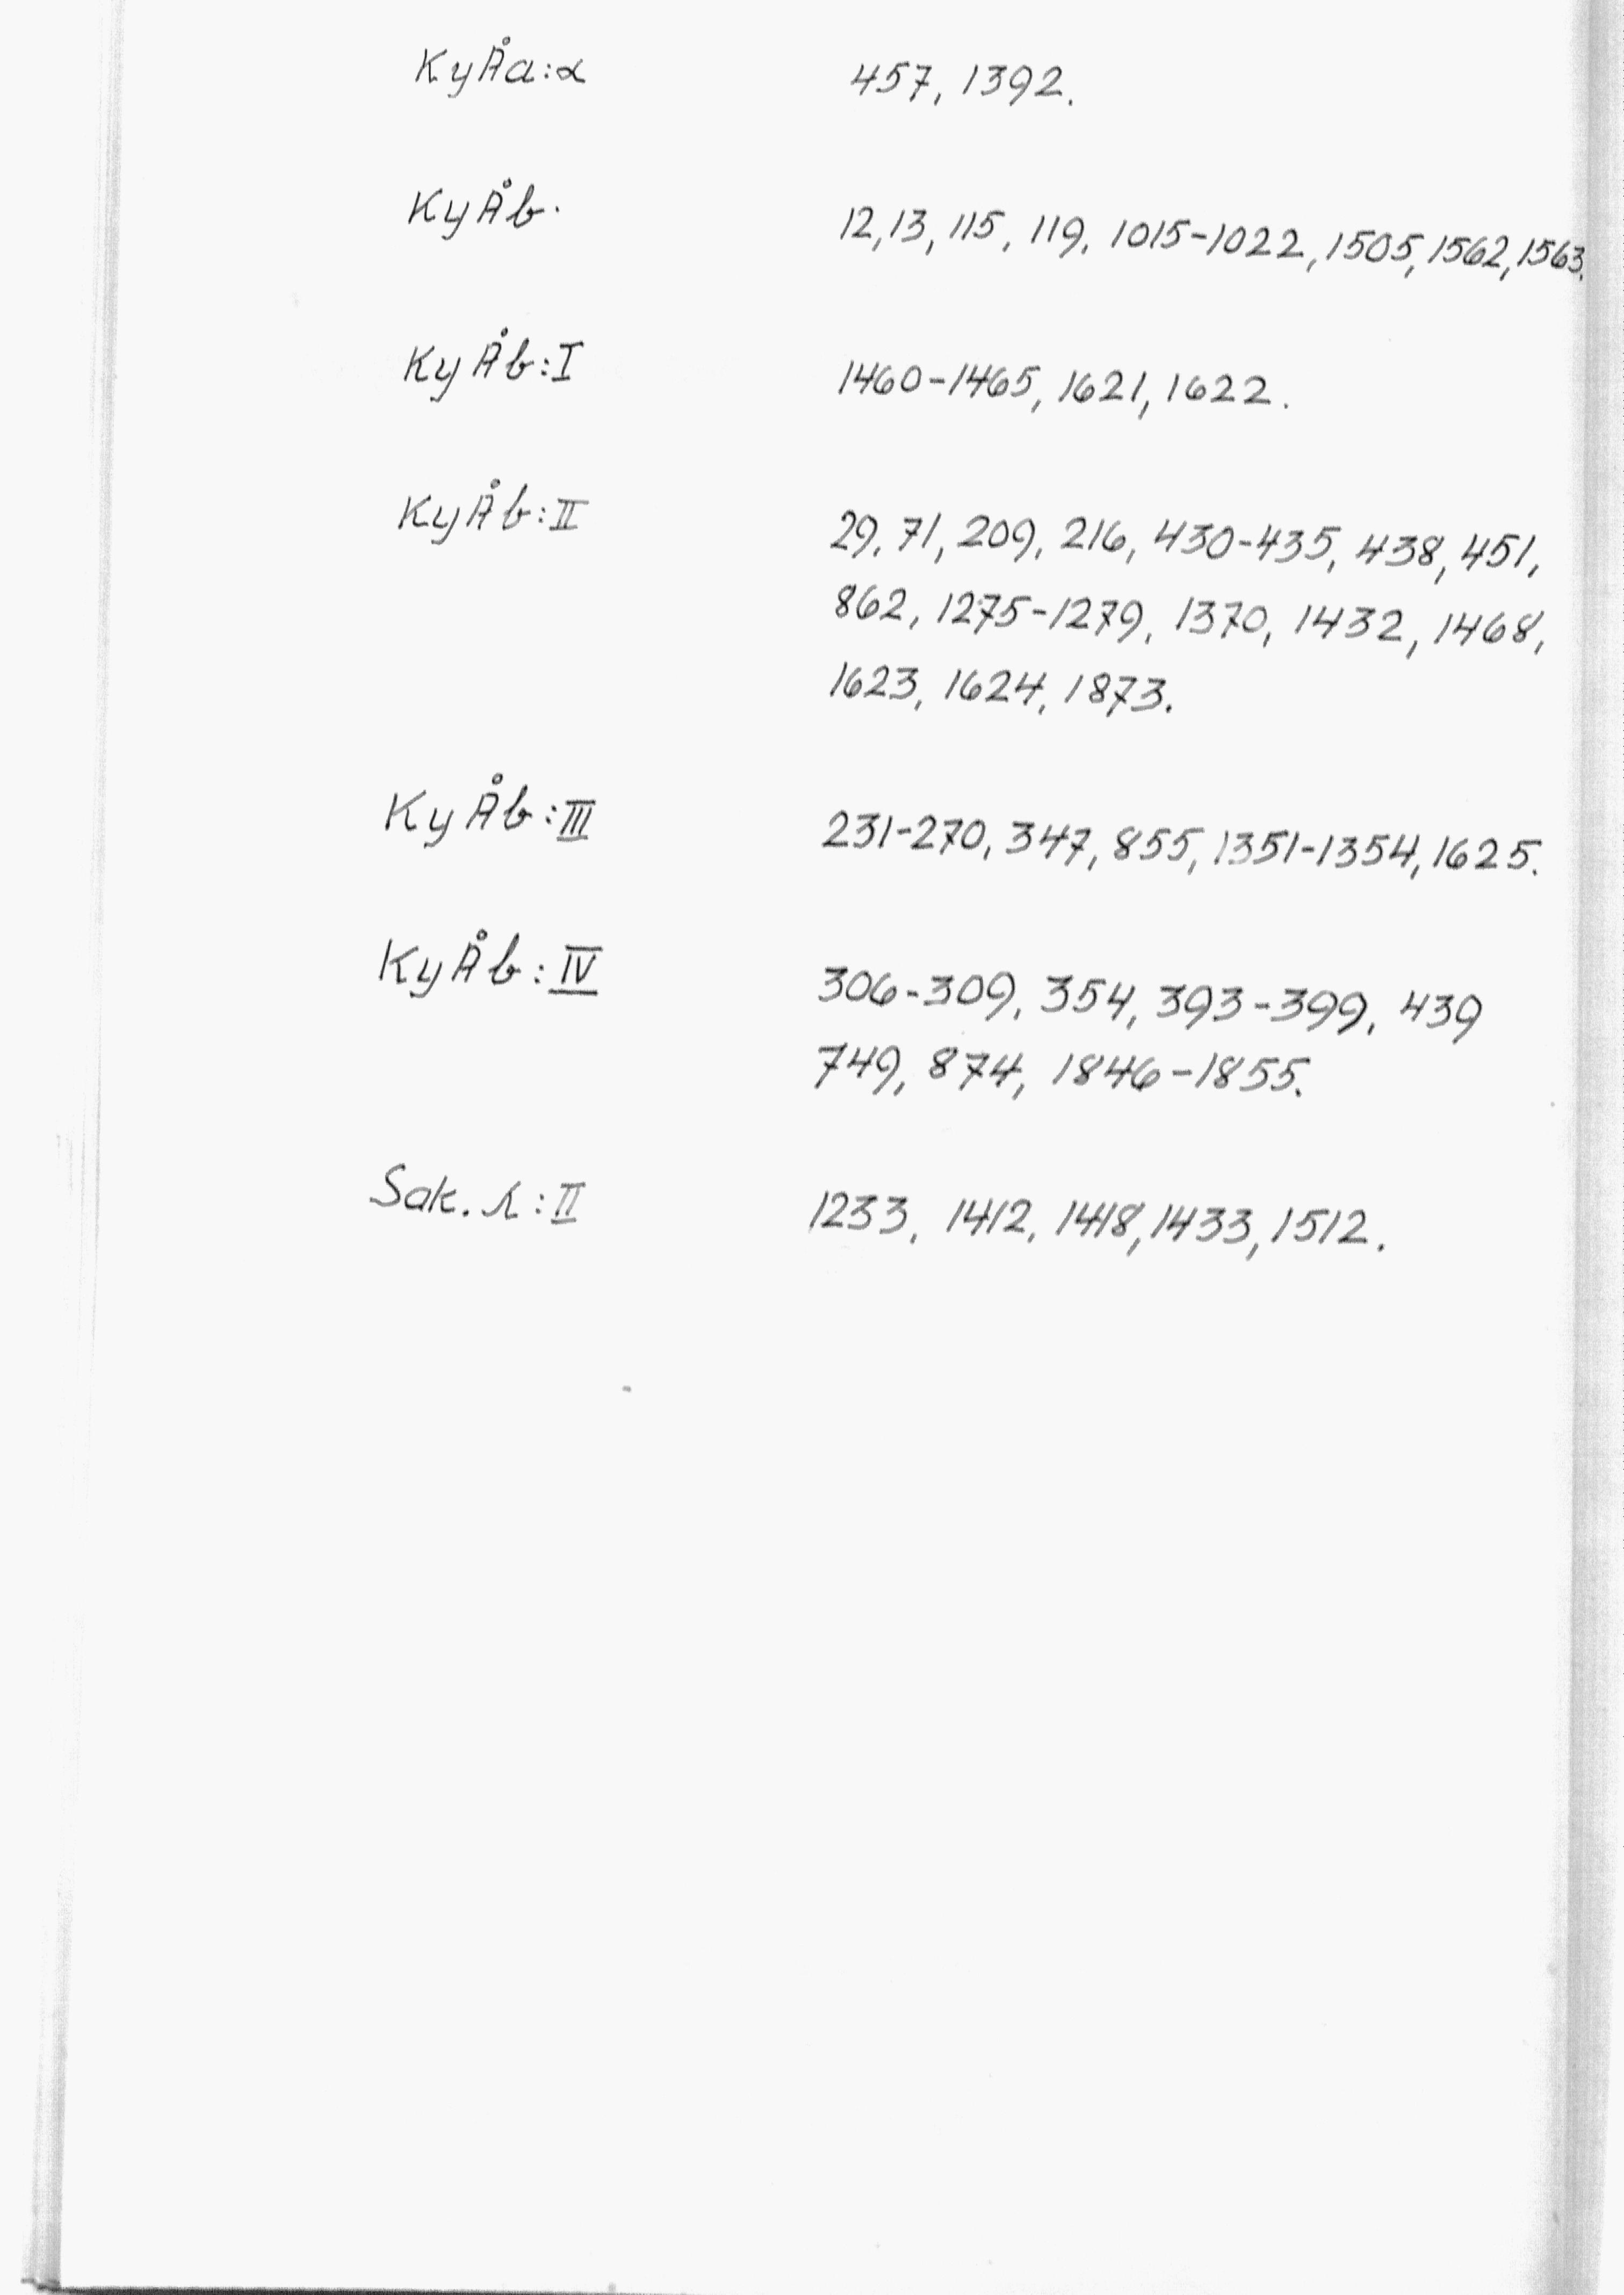 KyÅa:α 457, 1392.
KyÅb. 12, 13, 115, 119, 1015-1022, 1505, 1562, 1563.
KyÅb:I 1460-1465, 1621, 1622.
KyÅb:II 29, 71, 209, 216, 430-435, 438, 451,
862, 1275-1279, 1370, 1432, 1468,
1623, 1624, 1873.
KyÅb:III 231-270, 347, 855, 1351-1354, 1625.
KyÅb:IV 306-309, 354, 393-399, 439
749, 874, 1846-1855.
Sak. :II 1233, 1412, 1418, 1433, 1512.